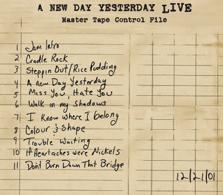 A NEW DAY YESTERDAY LIVE
Master Tape Control File
1 Jam Intro
2 Cradle Rock
3 Steppin Out/Rice Pudding
4 A new Day Yesterday
5 Miss You, Hate You
6 Walk in my Shadows
7 I Know where I belong
8 Colour & Shape
9 Trouble Waiting
10 If Heartaches were Nickels
11 Don't Burn Down That Bridge
12/21/01